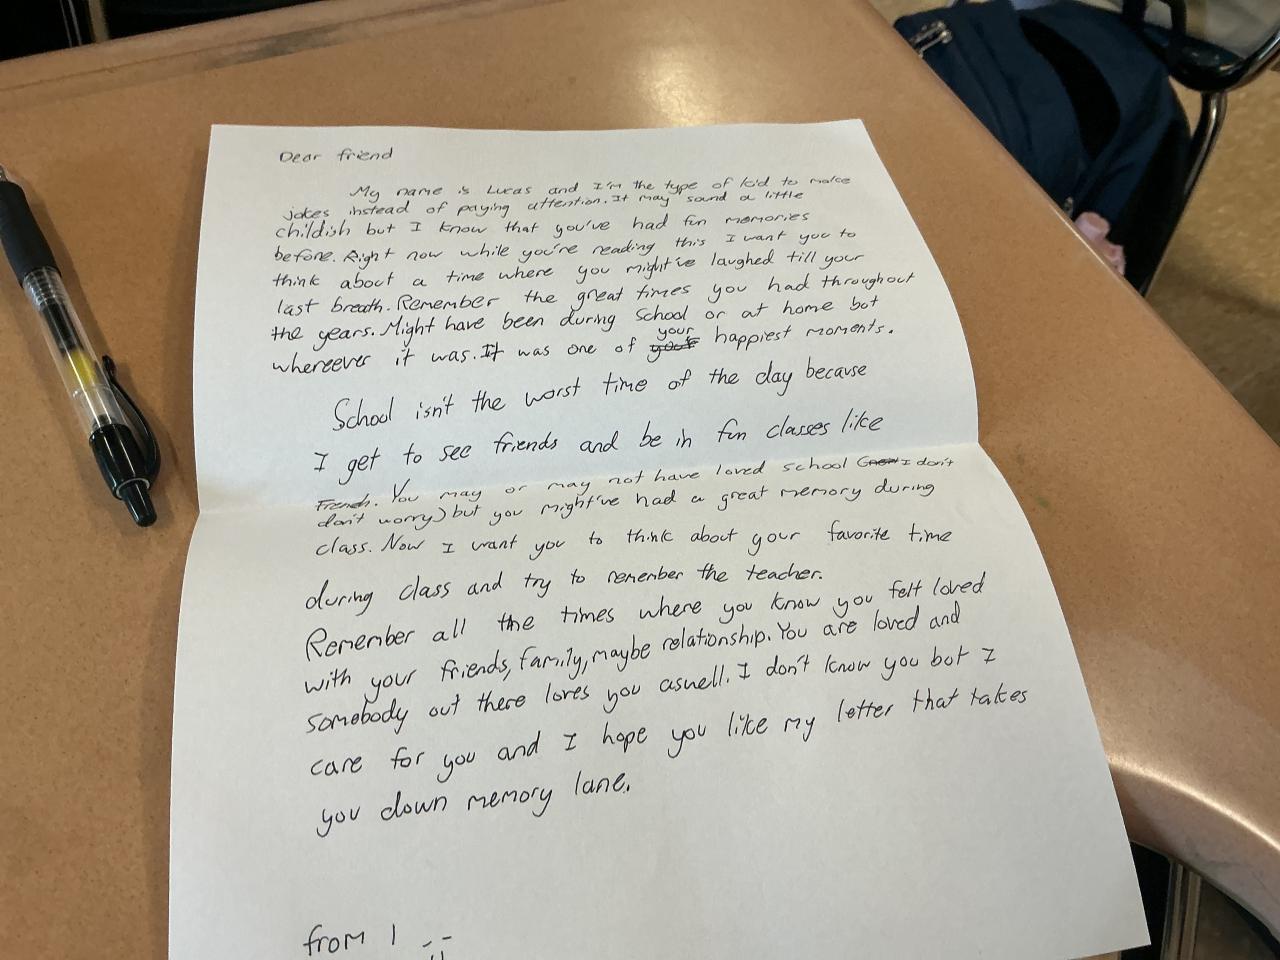 Dear friend
My name is Lucas and I'm the type of kid to make
jokes instead of paying attention. It may sound a little
childish but I know that you've had fun memories
before. Right now while you're reading this I want you to
think about a time where you might've laughed till your
last breath. Remember the great times you had throughout
the years. Might have been during School or at home bot
whereever it was. It was one of your happiest moments.
School isn't the worst time of the day because
I get to see friends and be in fun classes like
French. You may or may not have loved school I don't
don't worry) but you might've had a great memory during
class. Now I want you to think about your favorite time
during class and try to remember the teacher.
Remember all the times where you know you felt loved
with your friends, family, maybe relationship. You are loved and
somebody out there loves you aswell. I don't know you bot I
care for you and I hope you like my letter that takes
you down memory lane.
from